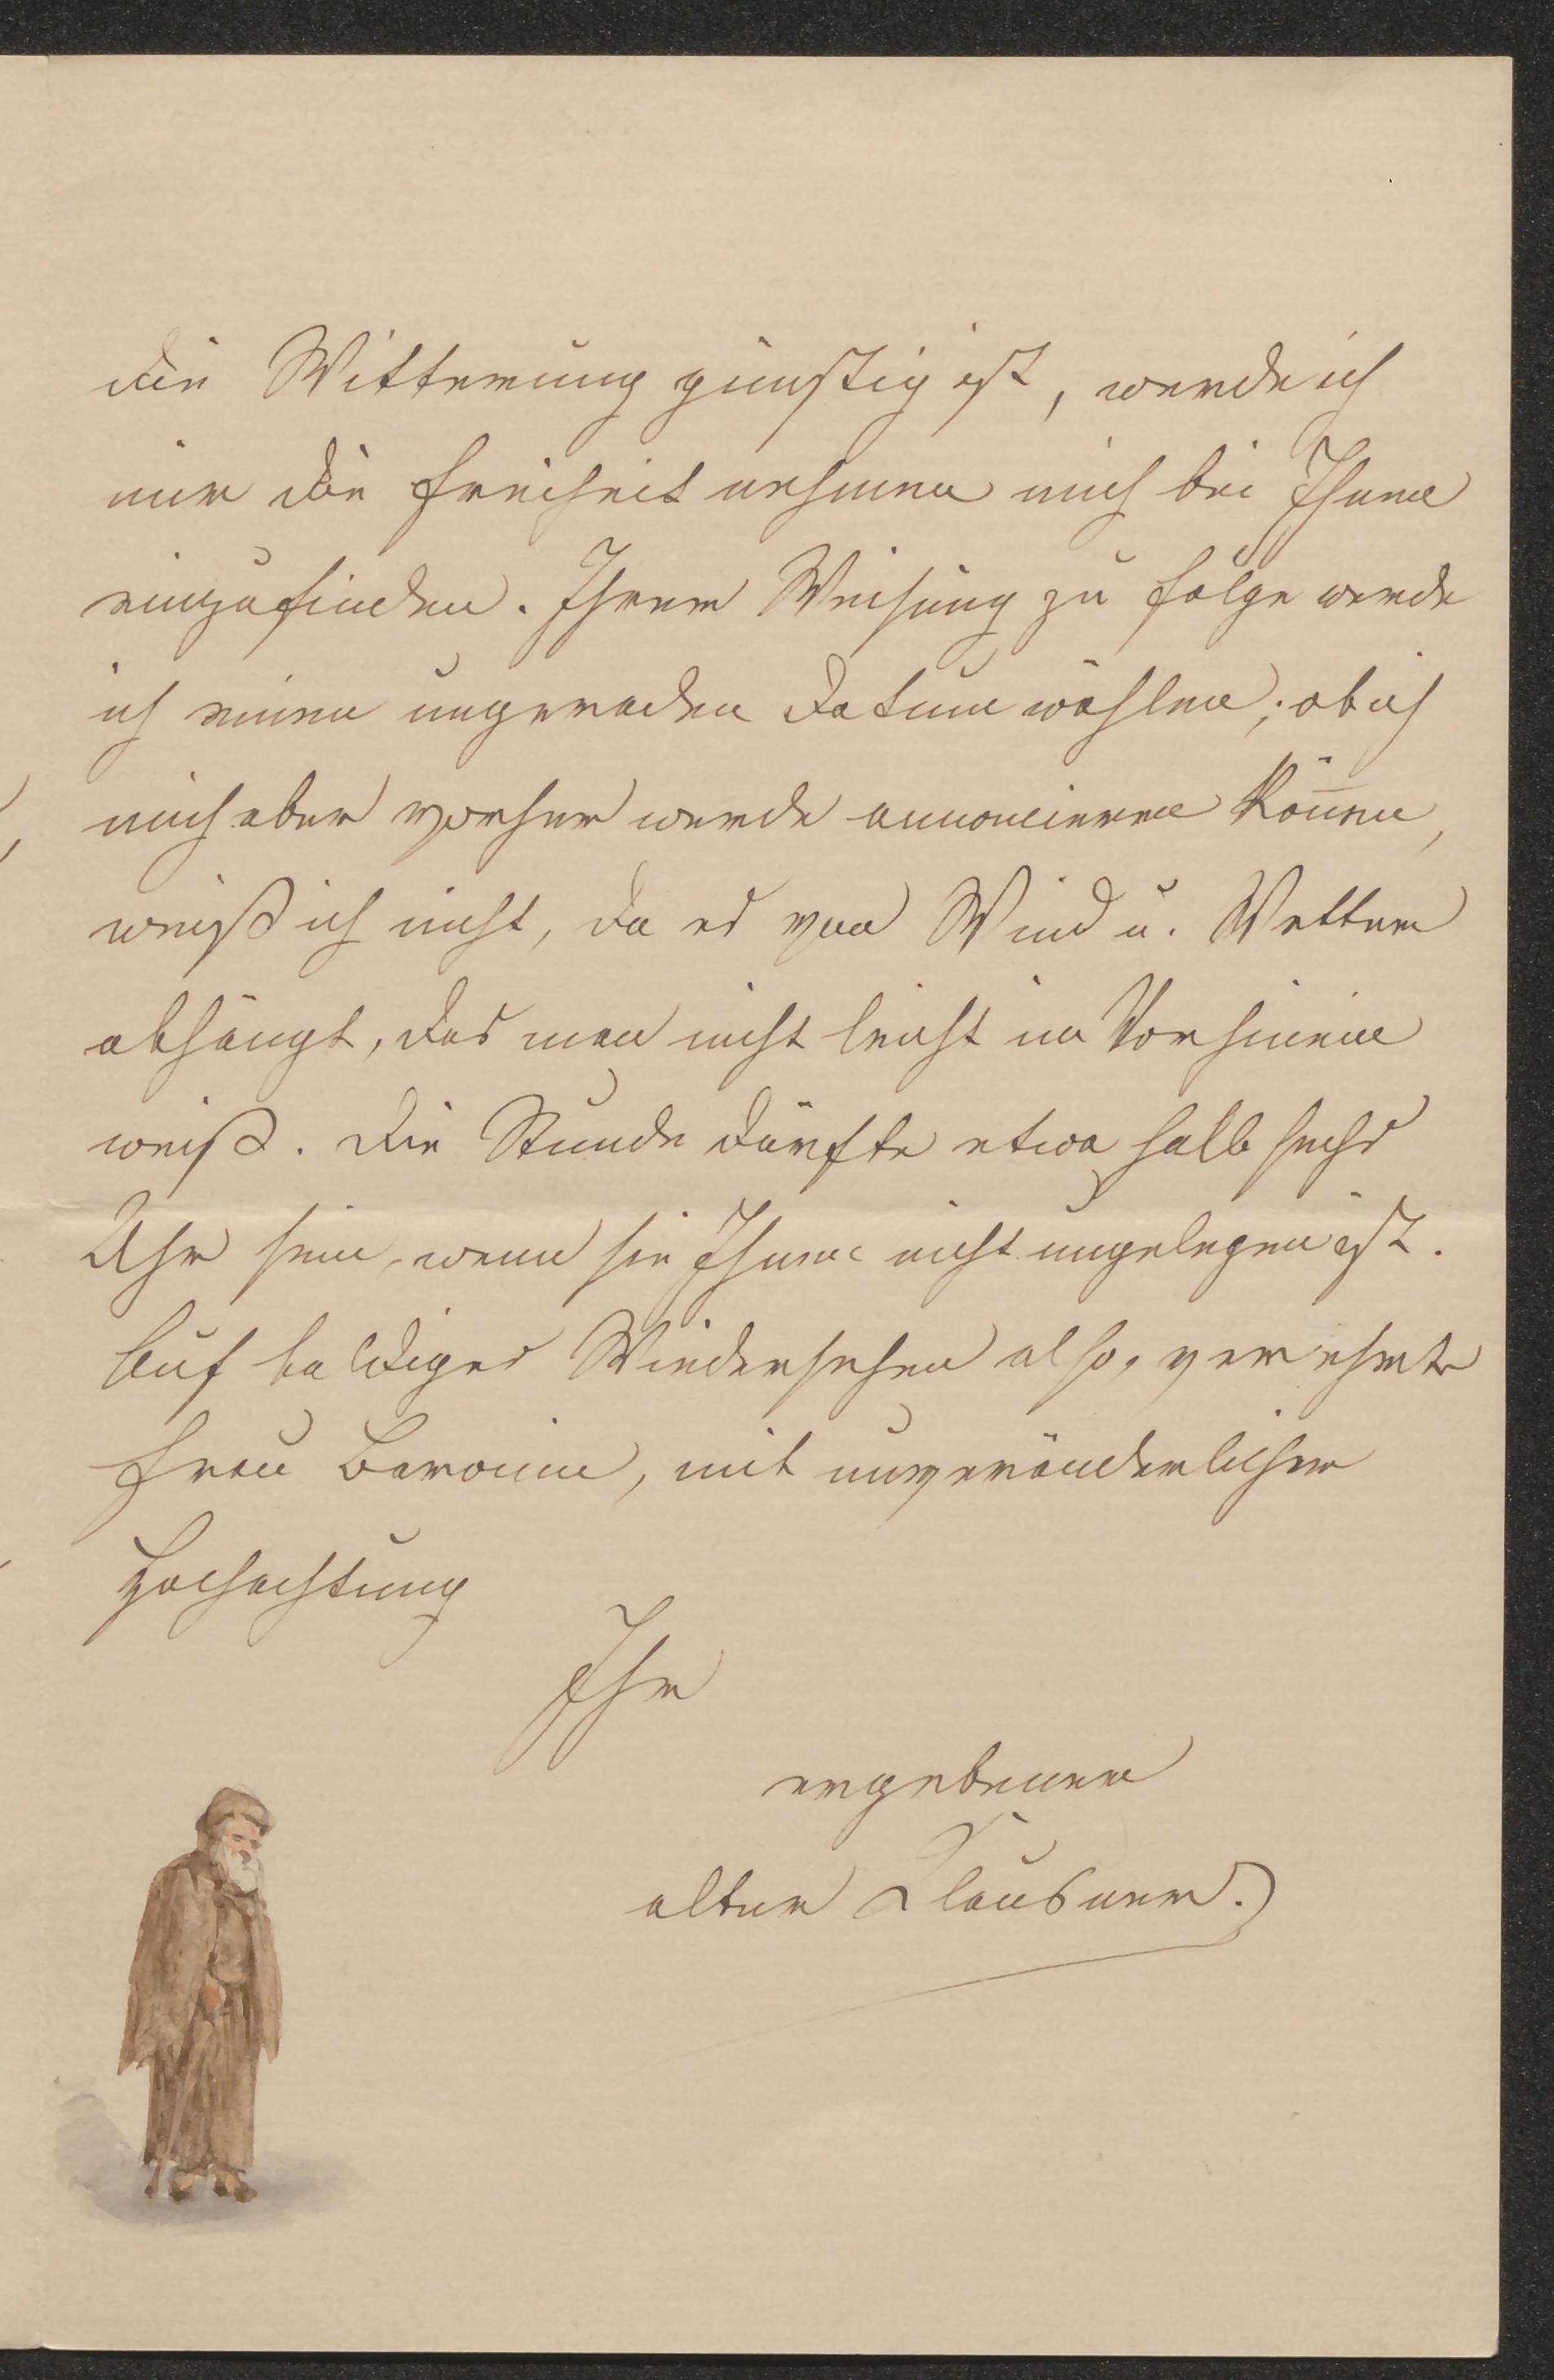 die Witterung günstig ist, werde ich
mir die Freiheit nehmen mich bei Ihnen
einzufinden. Ihrer Weisung zu folge werde
ich einen ungeraden Datum wählen; ob ich
mich aber vorher werde annoncieren kön̄en,
weiß ich nicht, da es von Wind u. Wetter
abhängt, das man nicht leicht im Vorhinein
weiß. Die Stunde dürfte etwa halb sechs
Uhr sein, wenn sie Ihnen nicht ungelegen ist.
Auf baldiges Wiedersehen also, verehrte
Frau Baronin, mit unveränderlicher
Hochachtung
Ihr
ergebener
alter Klausner.